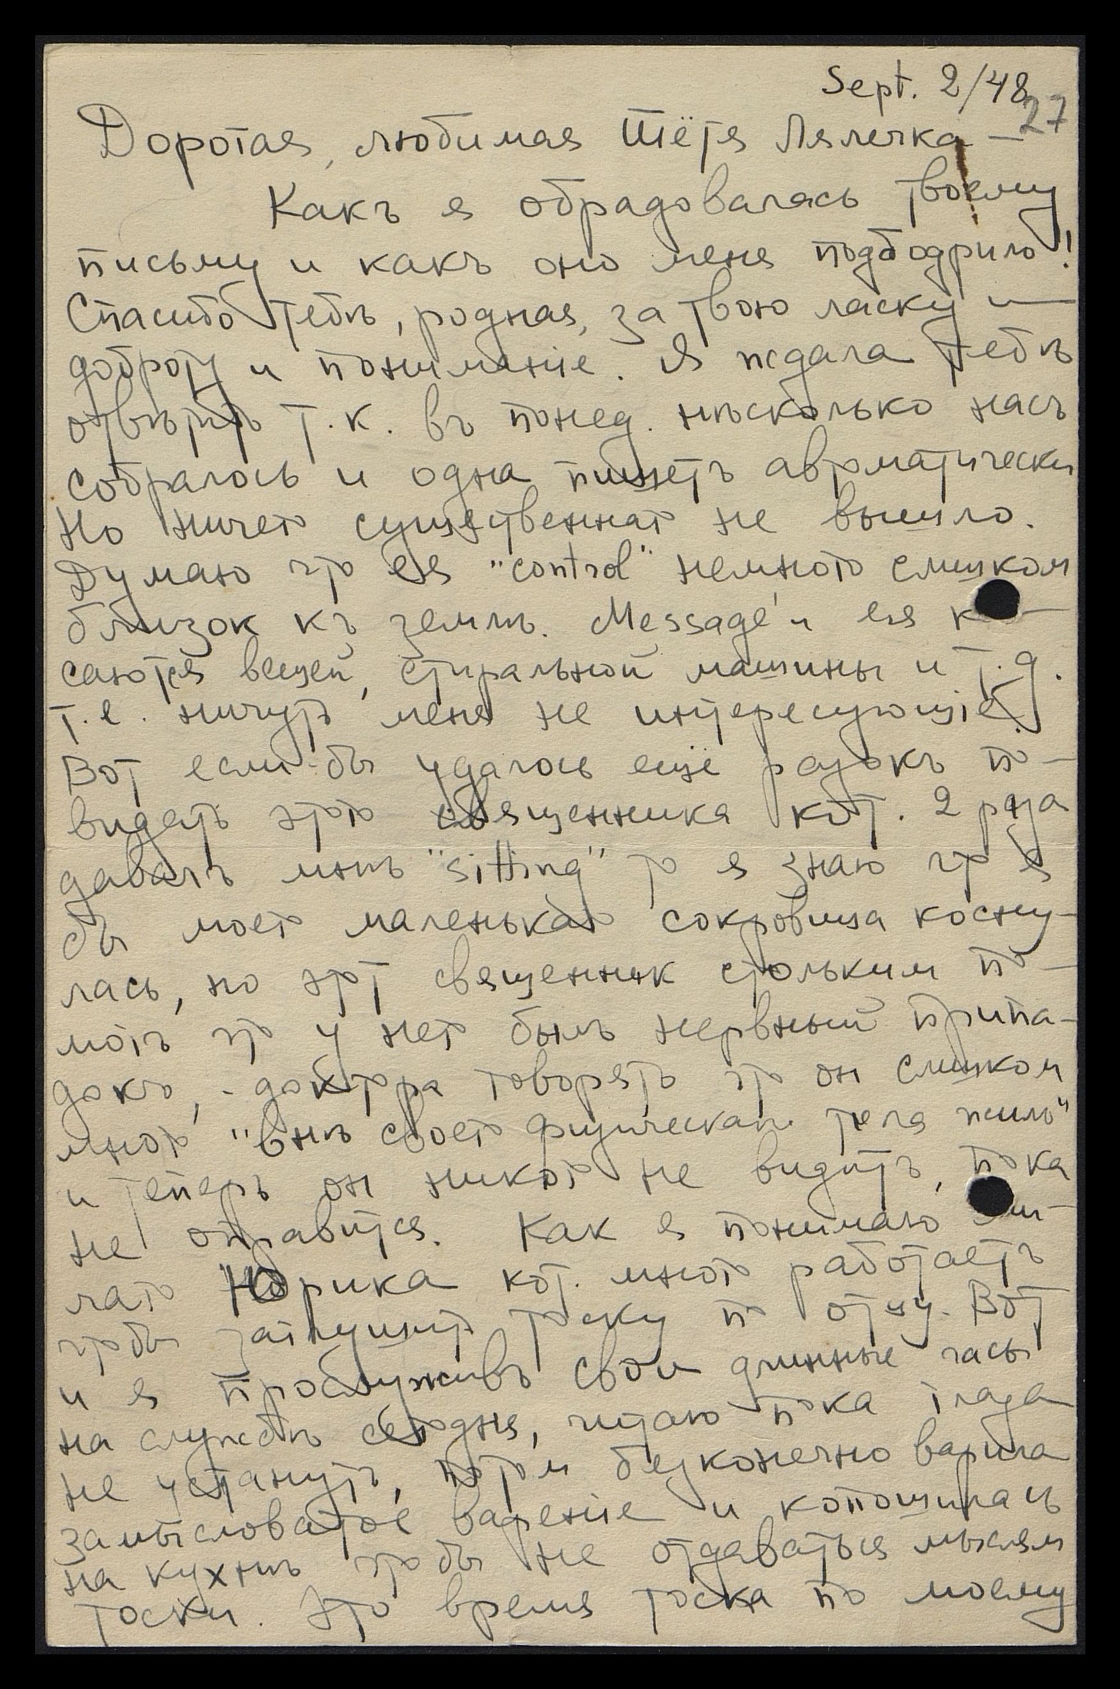 Sept. 2/48
27
Дорогая, любимая Тётя Лялечка —
Какъ я обрадовалась твоему
письму и какъ оно меня подбодрило!
Спасибо тебѣ, родная, за твою ласку и
доброту и пониманіе. Я ждала тебѣ
отвѣтить т.к. въ понед. нѣсколько насъ
собралось и одна пишетъ автоматически
Но ничего существеннаго не вышло.
Думаю что ея "control" немного слишком
близок къ землѣ. Message'и ея ка-
саются вещей, стиральной машины и т.д.
т.е. ничуть меня не интересующіе.
Вот если-бы удалось ещё разокъ по-
видать этого священника кот. 2 раза
давалъ мнѣ "sitting" то я знаю что я
бы моего маленькаго сокровища косну-
лась, но этот священник стольким по-
могъ что у него былъ нервный припа-
докъ, - доктора говорятъ что он слишком
много "внѣ своего физическаго тѣла жилъ"
и теперь он никого не видитъ, пока
не оправится. Как я понимаю
Юрика кот. много работаетъ
чтобы заглушить тоску по отцу. Вот
и я прослуживъ свои длинные часы
на службѣ сегодня, читаю пока глаза
не устанутъ, потом безконечно варила
замысловатое варенье и копошилась
на кухнѣ чтобы не отдаваться мыслям
тоски. Это время тоска по моему